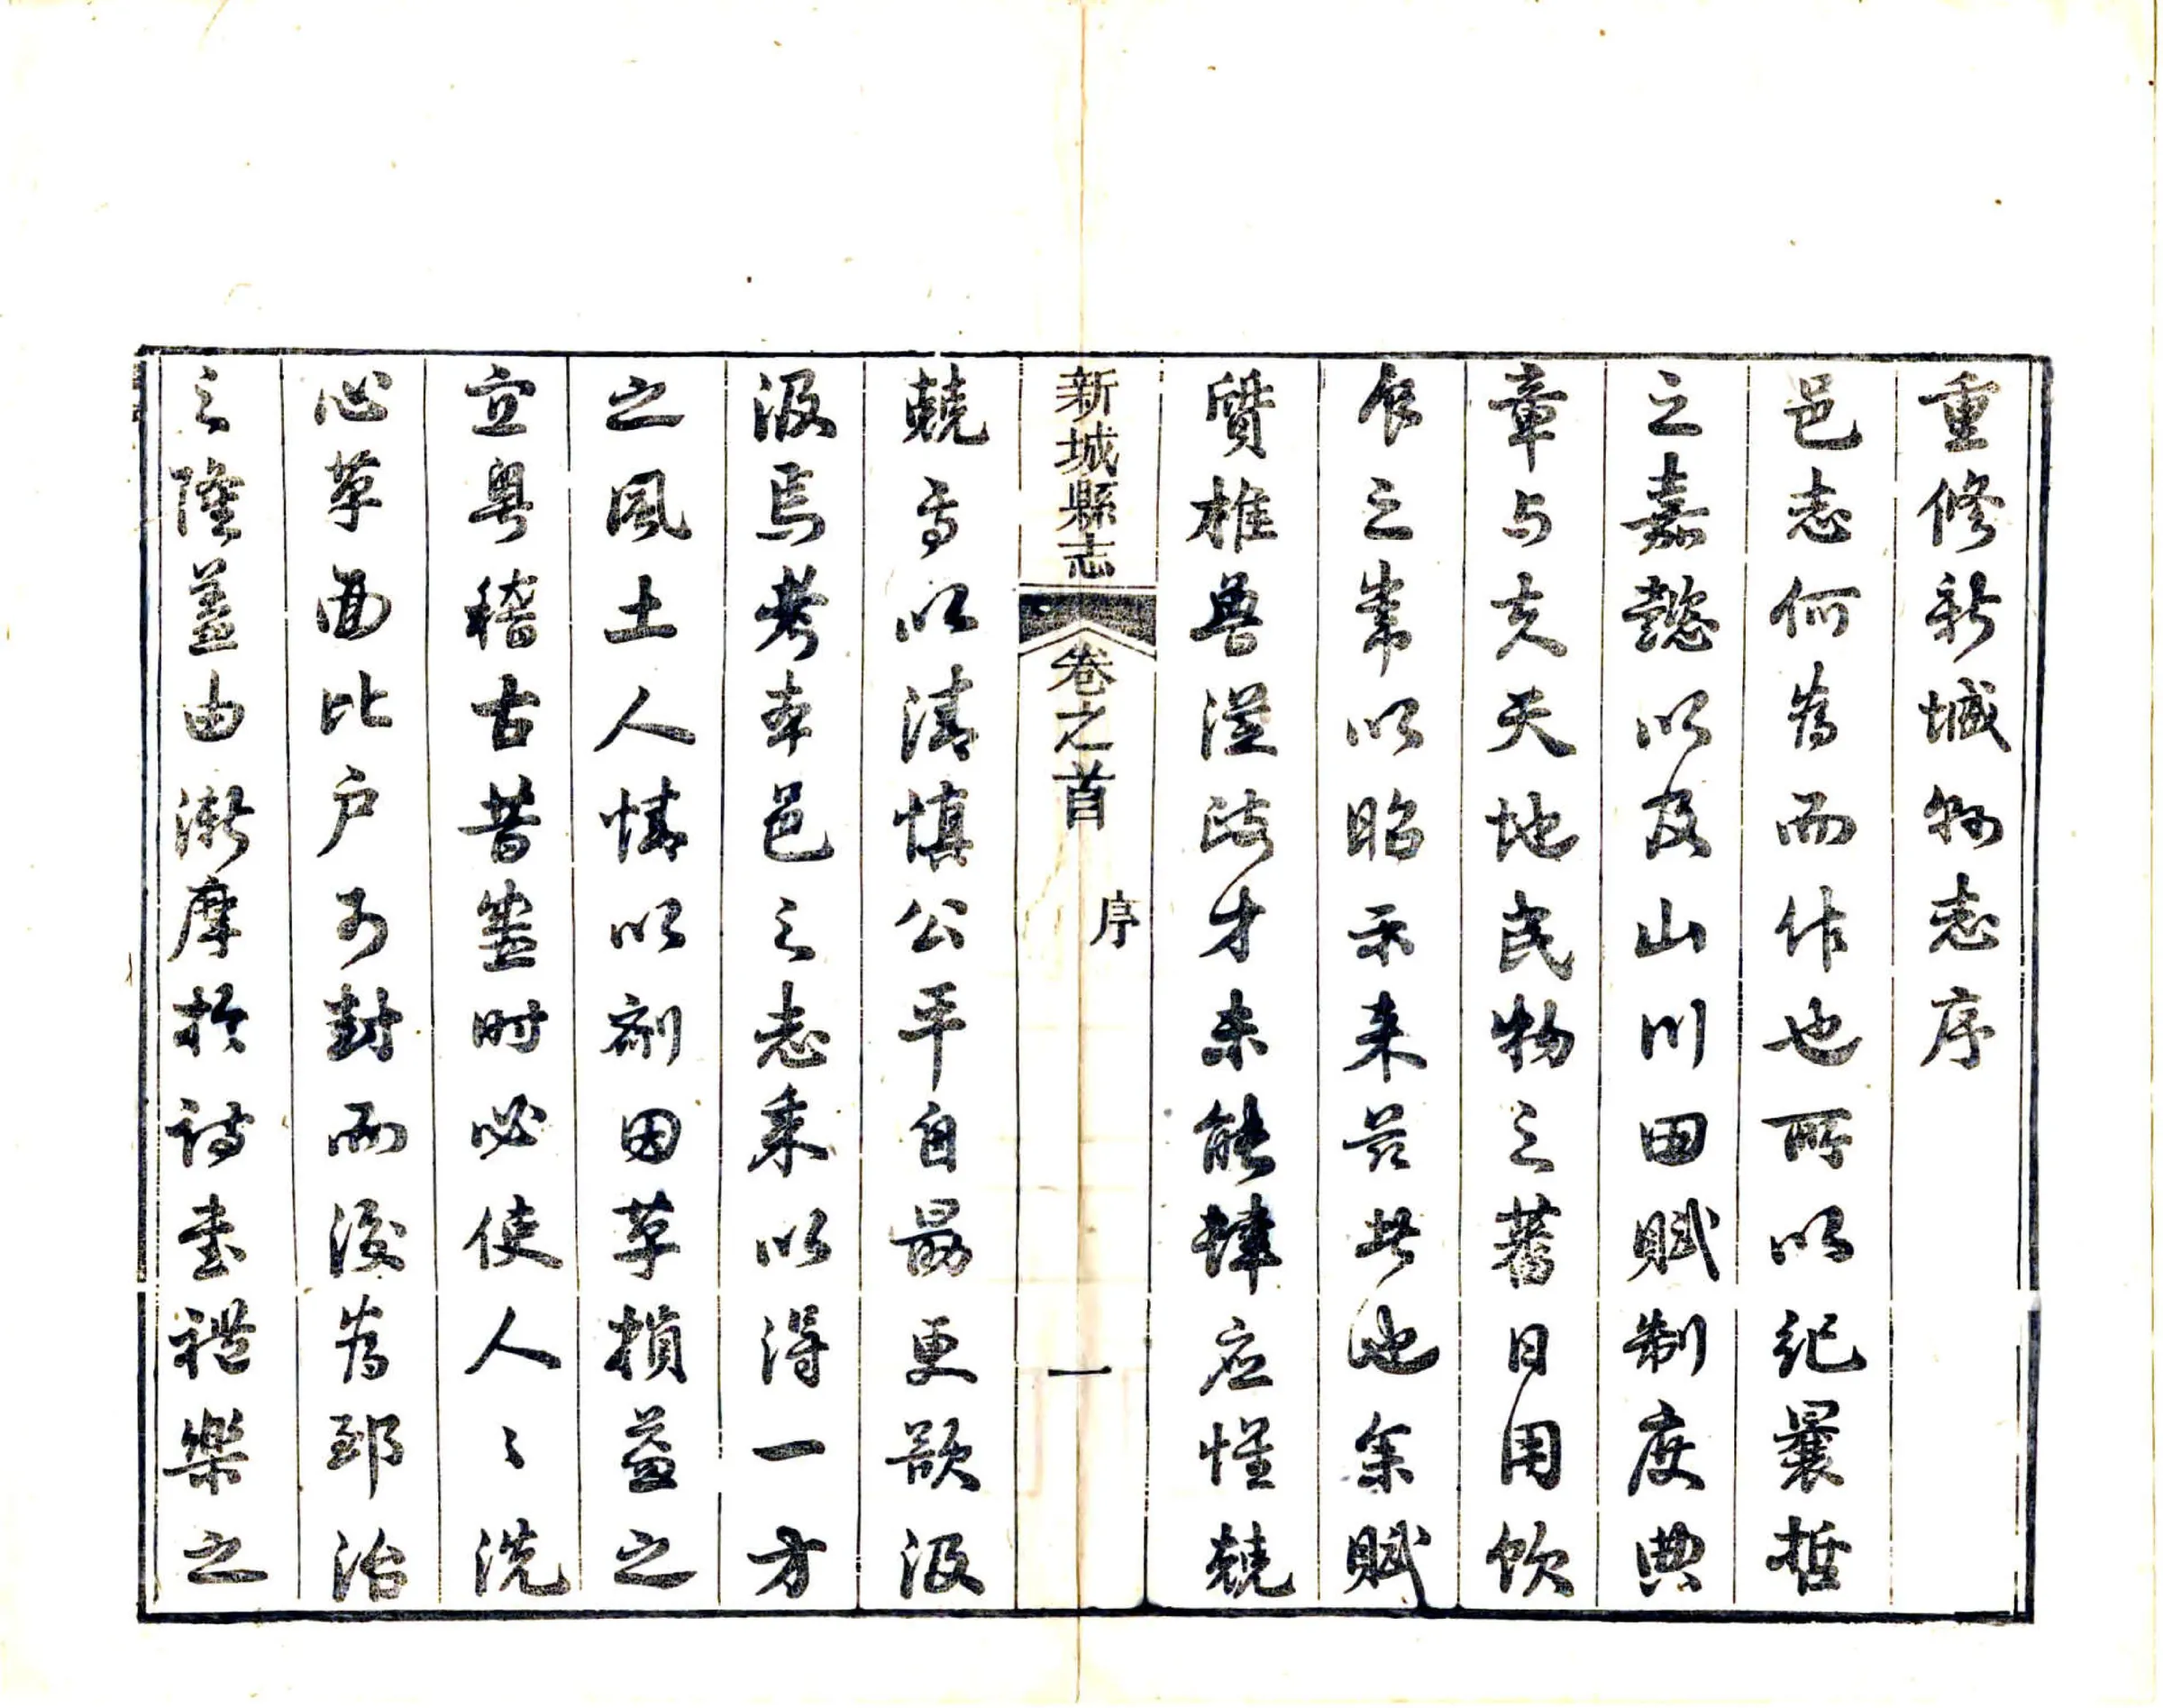 重修新城縣志序
邑志何為而作也所以紀曩哲
之嘉懿以及山川田賦制度典
章与夫天地民物之蕃日用飲
食之常以昭示来茲者也余賦
質椎魯涇政才未能肆应惟兢
新城縣志 卷之首 序 一
兢焉以清慎公平自勗更欲汲
汲焉考本邑之志乘以得一方
之風土人情以剂因革損益之
宜粤稽古昔盛时必使人〻洗
心革面比户可封而後為郅治
之隆蓋由漸摩於詩書禮樂之